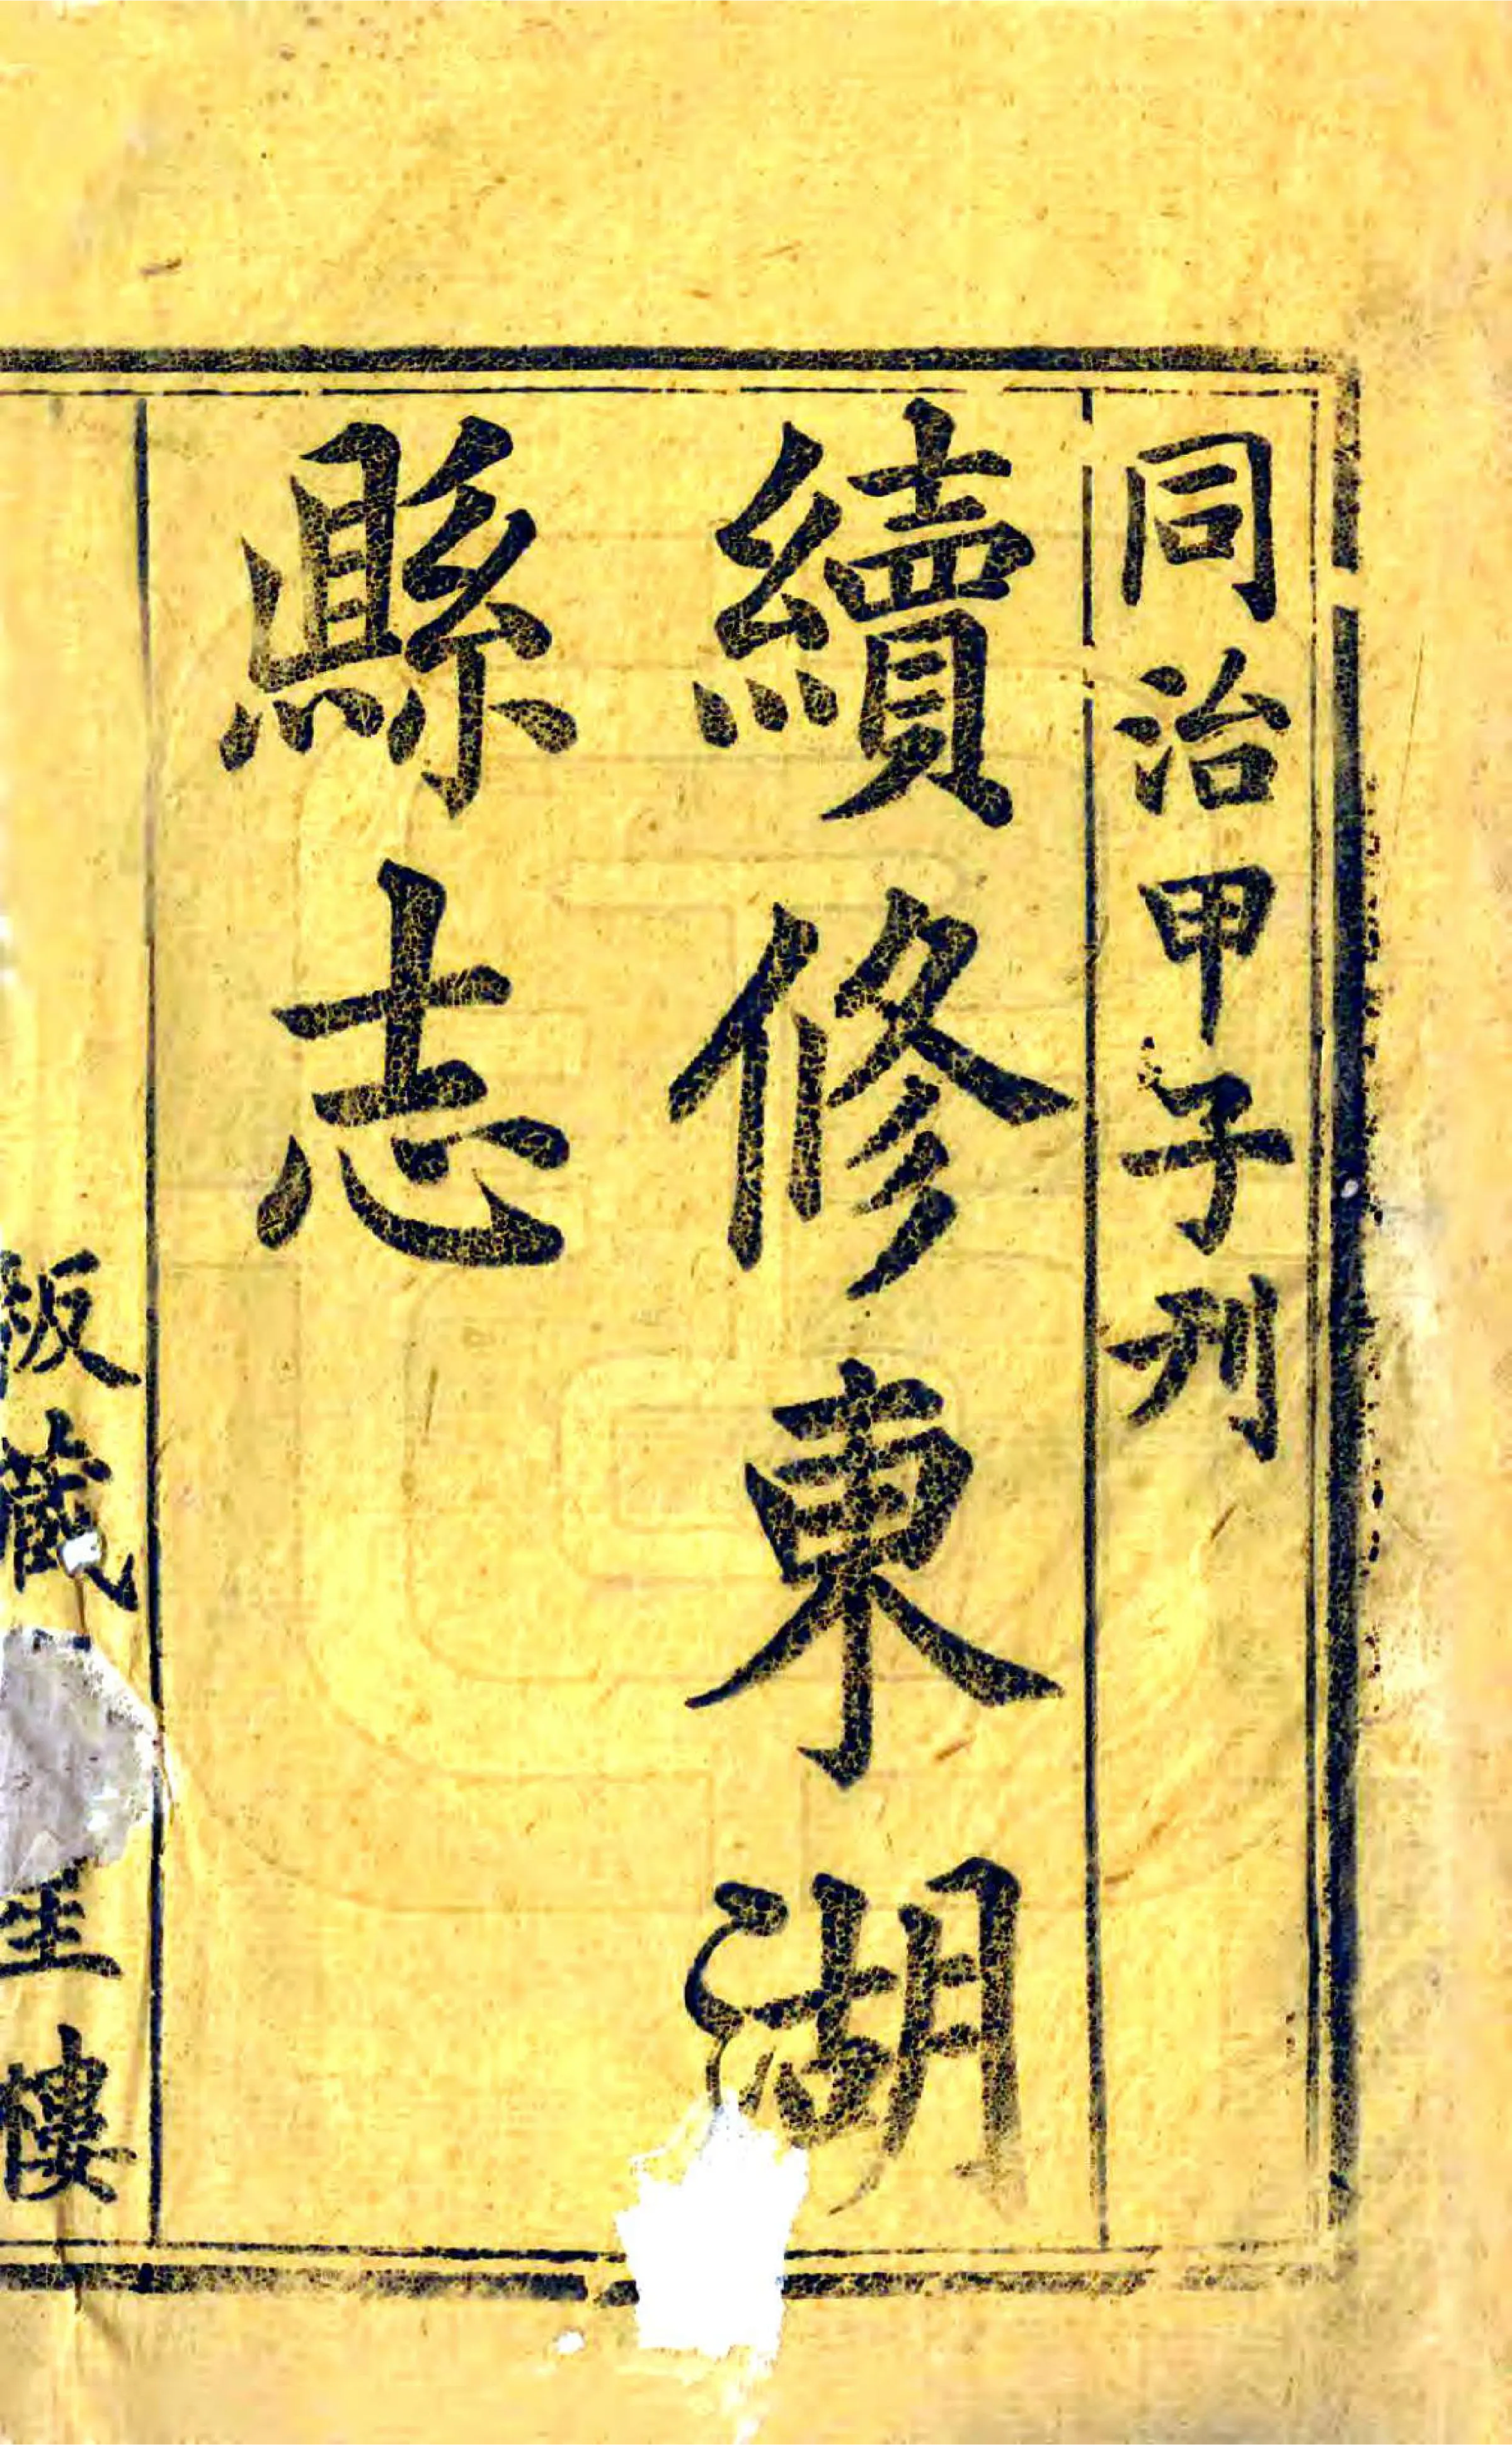 同治甲子刊
續修東湖
縣志
板藏
樓